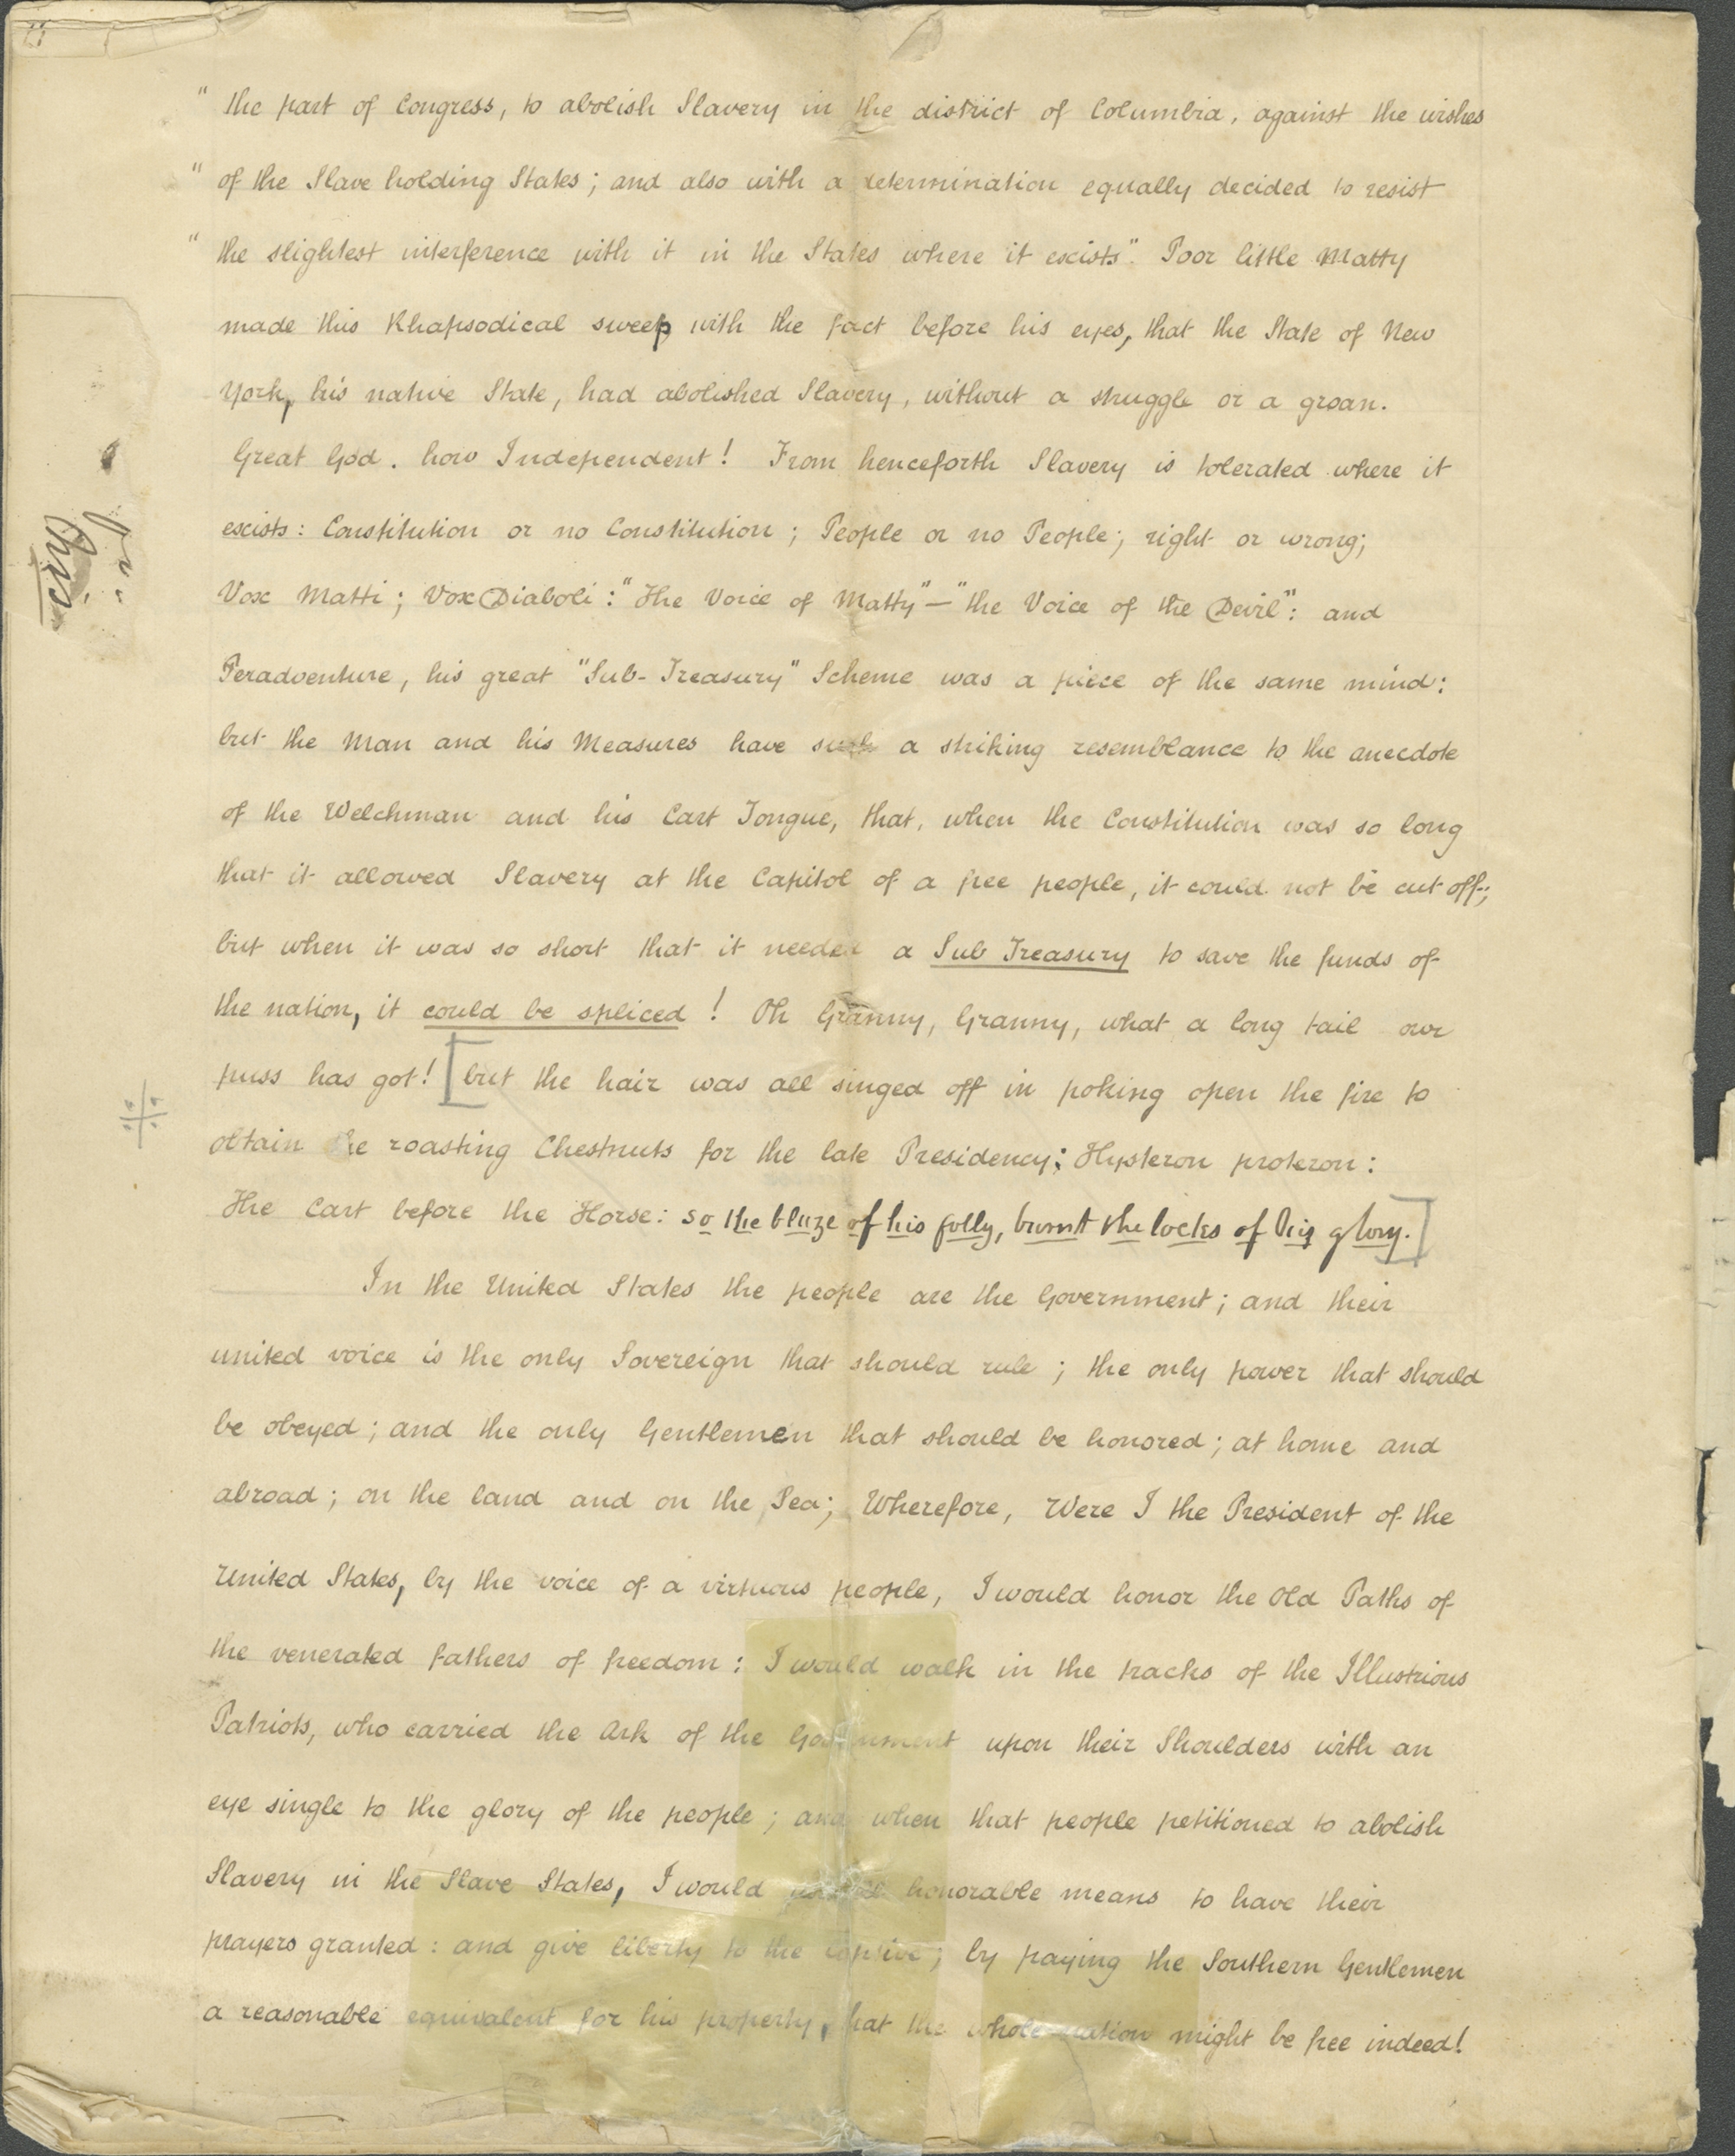 " the part of Congress, to abolish Slavery in the district of Columbia, against the wishes
" of the Slave holding States; and also with a determination equally decided to resist
" the slightest interference with it in the States where it excists". Poor little Matty
made this Rhapsodical sweep with the fact before his eyes, that the State of New
York, his native State, had abolished Slavery, without a struggle or a groan.
Great God. how Independent! From henceforth Slavery is tolerated where it
excists: Constitution or no Constitution; People or no People; right or wrong;
Vox Matti; Vox Diaboli: "The Voice of Matty"—"the Voice of the Devil": and
Peradventure, his great "Sub-Treasury" Scheme was a piece of the same mind:
but the Man and his Measures have such a striking resemblance to the anecdote
of the Welchman and his Cart Tongue, that, when the Constitution was so long
that it allowed Slavery at the Capitol of a free people, it could not be cut off;
but when it was so short that it needed a Sub Treasury to save the funds of
the nation, it could be spliced! Oh Granny, Granny, what a long tail our
puss has got! [but the hair was all singed off in poking open the fire to
obtain the roasting Chestnuts for the late Presidency: Hysteron proteron:
The Cart before the Horse: so the blaze of his folly, burnt the locks of his glory.]
In the United States the people are the Government; and their
united voice is the only Sovereign that should rule; the only power that should
be obeyed; and the only Gentlemen that should be honored; at home and
abroad; on the land and on the Sea; Wherefore, Were I the President of the
United States, by the voice of a virtuous people, I would honor the Old Paths of
the venerated fathers of freedom: I would walk in the tracks of the Illustrious
Patriots, who carried the Ark of the Government upon their Shoulders with an
eye single to the glory of the people; and when that people petitioned to abolish
Slavery in the Slave States, I would honorable means to have their
prayers granted: and give liberty to the Captive; by paying the Southern Gentlemen
a reasonable equivalent for his property, that the whole nation might be free indeed!